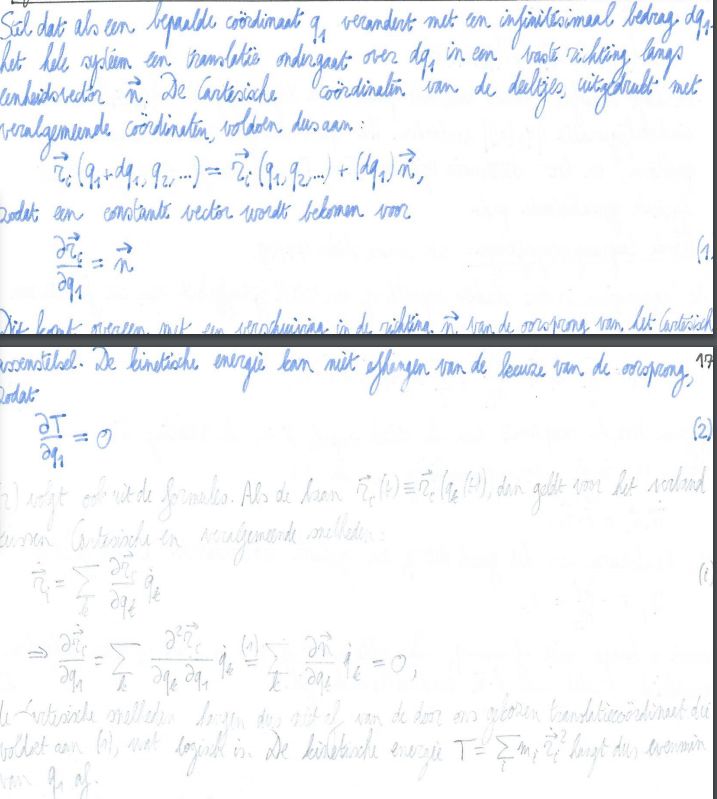 Stel dat als een bepaalde coördinaat q₁ verandert met een infinitesimaal bedrag dq₁.
het hele systeem een translatie ondergaat over dq₁ in een vaste richting langs
eenheidsvector n⃗. De Cartesische coördinaten van de deeltjes, uitgedrukt met
veralgemeende coördinaten, voldoen dus aan:
r⃗ᵢ (q₁+dq₁, q₂, ...) = r⃗ᵢ (q₁, q₂, ...) + (dq₁) n⃗,
zodat een constante vector wordt bekomen voor
∂r⃗ᵢ/∂q₁ = n⃗ (1.
Dit komt overeen met een verschuiving in de richting n⃗ van de oorsprong van het Cartesisch
assenstelsel. De kinetische energie kan niet afhangen van de keuze van de oorsprong, 17
zodat
∂T/∂q₁ = 0 (2)
(2) volgt ook uit de formules. Als de baan r⃗ᵢ(t) ≡ r⃗ᵢ(qₖ(t)), dan geldt voor het verband
tussen Cartesische en veralgemeende snelheden:
ṙ⃗ᵢ = Σₖ ∂r⃗ᵢ/∂qₖ q̇ₖ (i)
⇒ ∂ṙ⃗ᵢ/∂q₁ = Σₖ ∂²r⃗ᵢ/∂qₖ∂q₁ q̇ₖ (1)= Σₖ ∂n⃗/∂qₖ q̇ₖ = 0,
de Cartesische snelheden hangen dus niet af van de door ons gekozen translatiecoördinaat die
voldoet aan (1), wat logisch is. De kinetische energie T = Σᵢ mᵢ ṙ⃗ᵢ² hangt dus evenmin
van q₁ af.